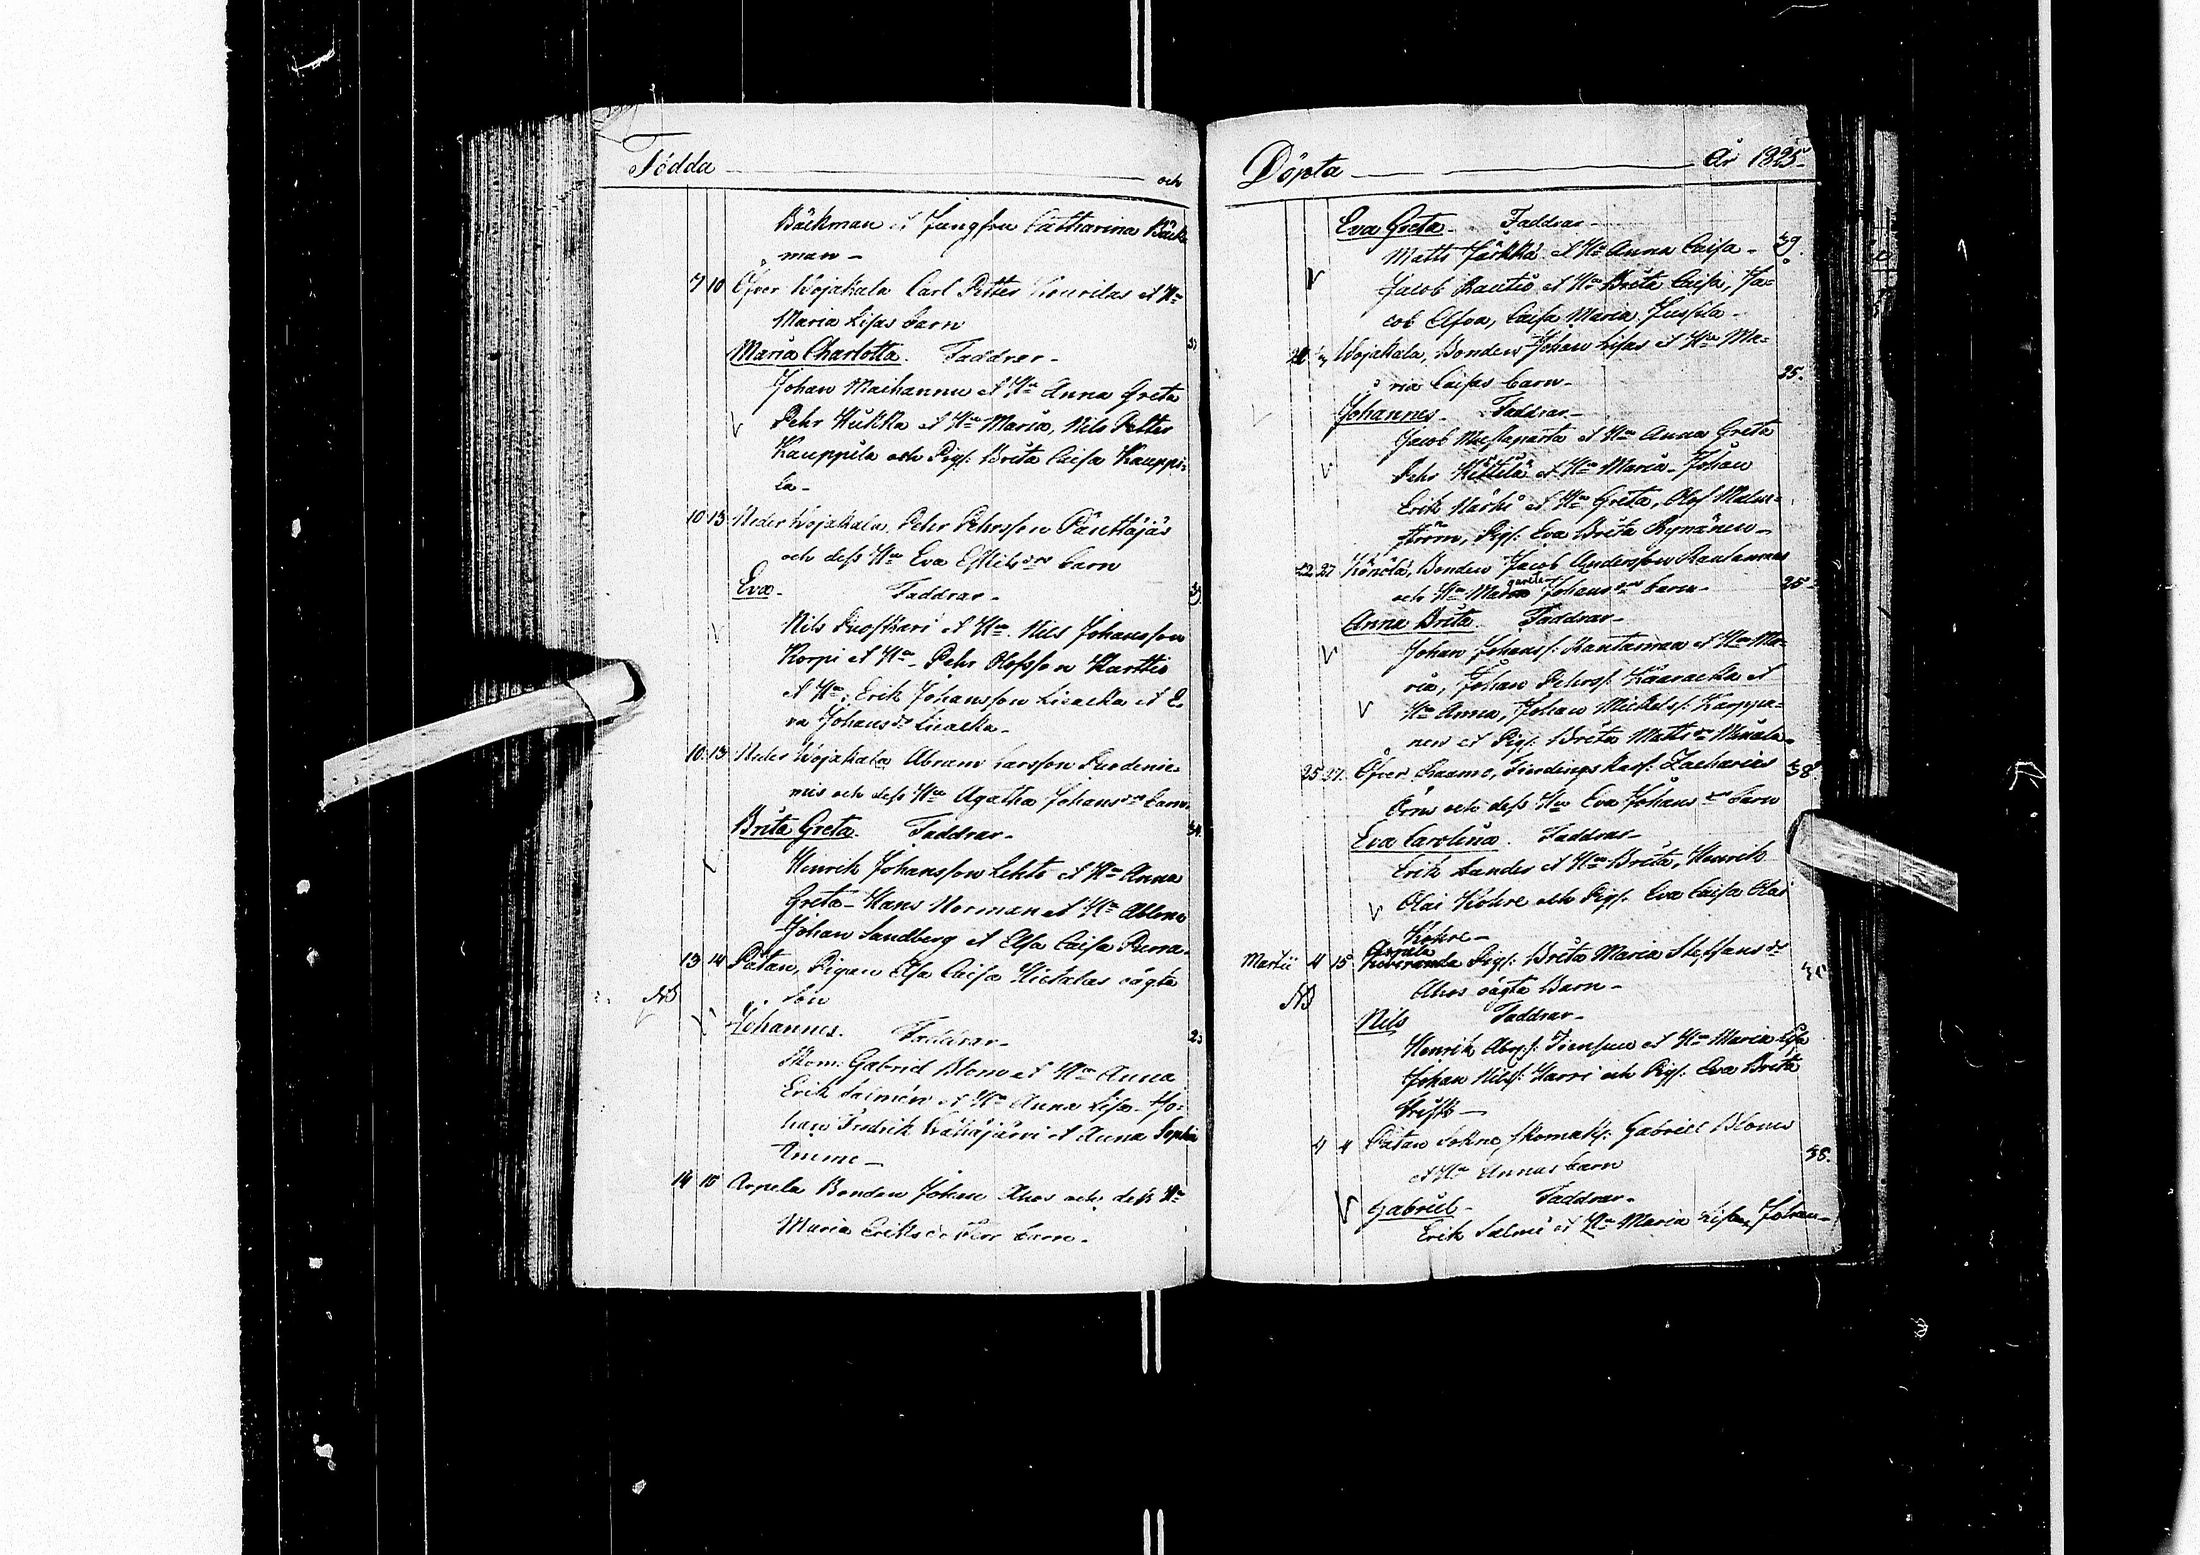 Födda och
Bäckman et Jungfru Catharina Bäck-
man -
7 10 Öfver Wojakala Carl Petter Kourilas et Hu
Maria Lisas barn
Maria Charlotta. Faddrar -
Johan Maihannu et Hu Anna Greta
Pehr Kukka et Hu Maria, Nils Petter
Kauppila och Pig: Brita Caisa Kauppi-
la -
10 13 Neder Wojakala, Pehr Pehrsson
och dess Hu Eva barn
Eva - Faddrar -
Nils et Hu. Nils Johansson
Korpi et Hu. Pehr Olofsson Karttio
et Hu. Erik Johansson Liacka et E-
va Johansdr Liacka -
10 13 Neder Wojakala Abram Larsson
och dess Hu Agatha Johansdr barn
Brita Greta. Faddrar -
Henrik Johansson Lehto et Hu Anna
Greta - Hans Norman et Hu
Johan Sandberg et Elsa Caisa
13 14 Pätan, Pigan Elsa Caisa Hietalas oägta
NB Son
Johannes. Faddrar -
Skom: Gabriel Blom et Hu Anna
Erik Salmén et Hu Anna Lisa. Jo-
han Fredrik et Anna Sophia
14 15 Arpela Bonden Johan Ahos och dess Hu
Maria Eriksdotter barn -
Döpta År 1825 -
Eva Greta - Faddrar -
Matts Järkkä et Hu Anna Caisa - 39.
Jacob Rautio et Hu Brita Caisa, Ja-
cob Caisa Maria Jussila -
Wojakala, Bonden Johan Lisas et Hu Ma-
ria Caisas barn - 25.
Johannes - Faddrar -
Jacob et Hu Anna Greta
Pehr Kittilä et Hu Maria - Johan
Erik Närhi et Hu Greta, Olof Malm-
ström, Pig: Eva Brita
22 27 Könölä, Bonden Jacob Andersson Rantamaa
och Hu Johansdr barn - 25 -
Anna Brita Faddrar -
Johan Johanss: Rantamaa et Hu Ma-
ria, Johan Pehrss: Kaaracka et
Hu Anna, Johan Mickels: Karppa-
nen et Pig: Brita Mattsdr
25 27 Öfver Raumo, Zacharias 38
och dess Hu Eva Johansdr barn
Eva Carolina. Faddrar -
Erik Landes et Hu Brita, Henrik
Olai Kokre och Pig: Eva Caisa Olai
Kokre -
Arpela
Martii 4 15 Pig: Brita Maria Steffansdr
NB Ahos oägta Barn -
Nils Faddrar -
Henrik et Hu Maria Lisa
Johan Nilss: Harri och Pig: Eva Brita
4 Pätan Sokne, Skomak: Gabriel Bloms
et Hu Annas barn 38.
Gabriel - Faddrar -
Erik Salmi et Hu Maria Lisa, Johan -